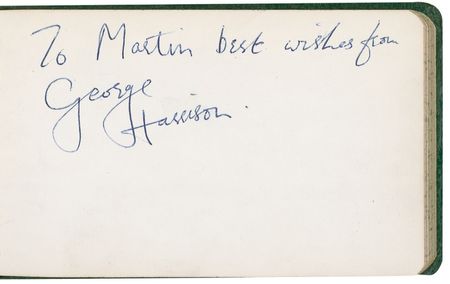 To Martin best wishes from
George
Harrison.